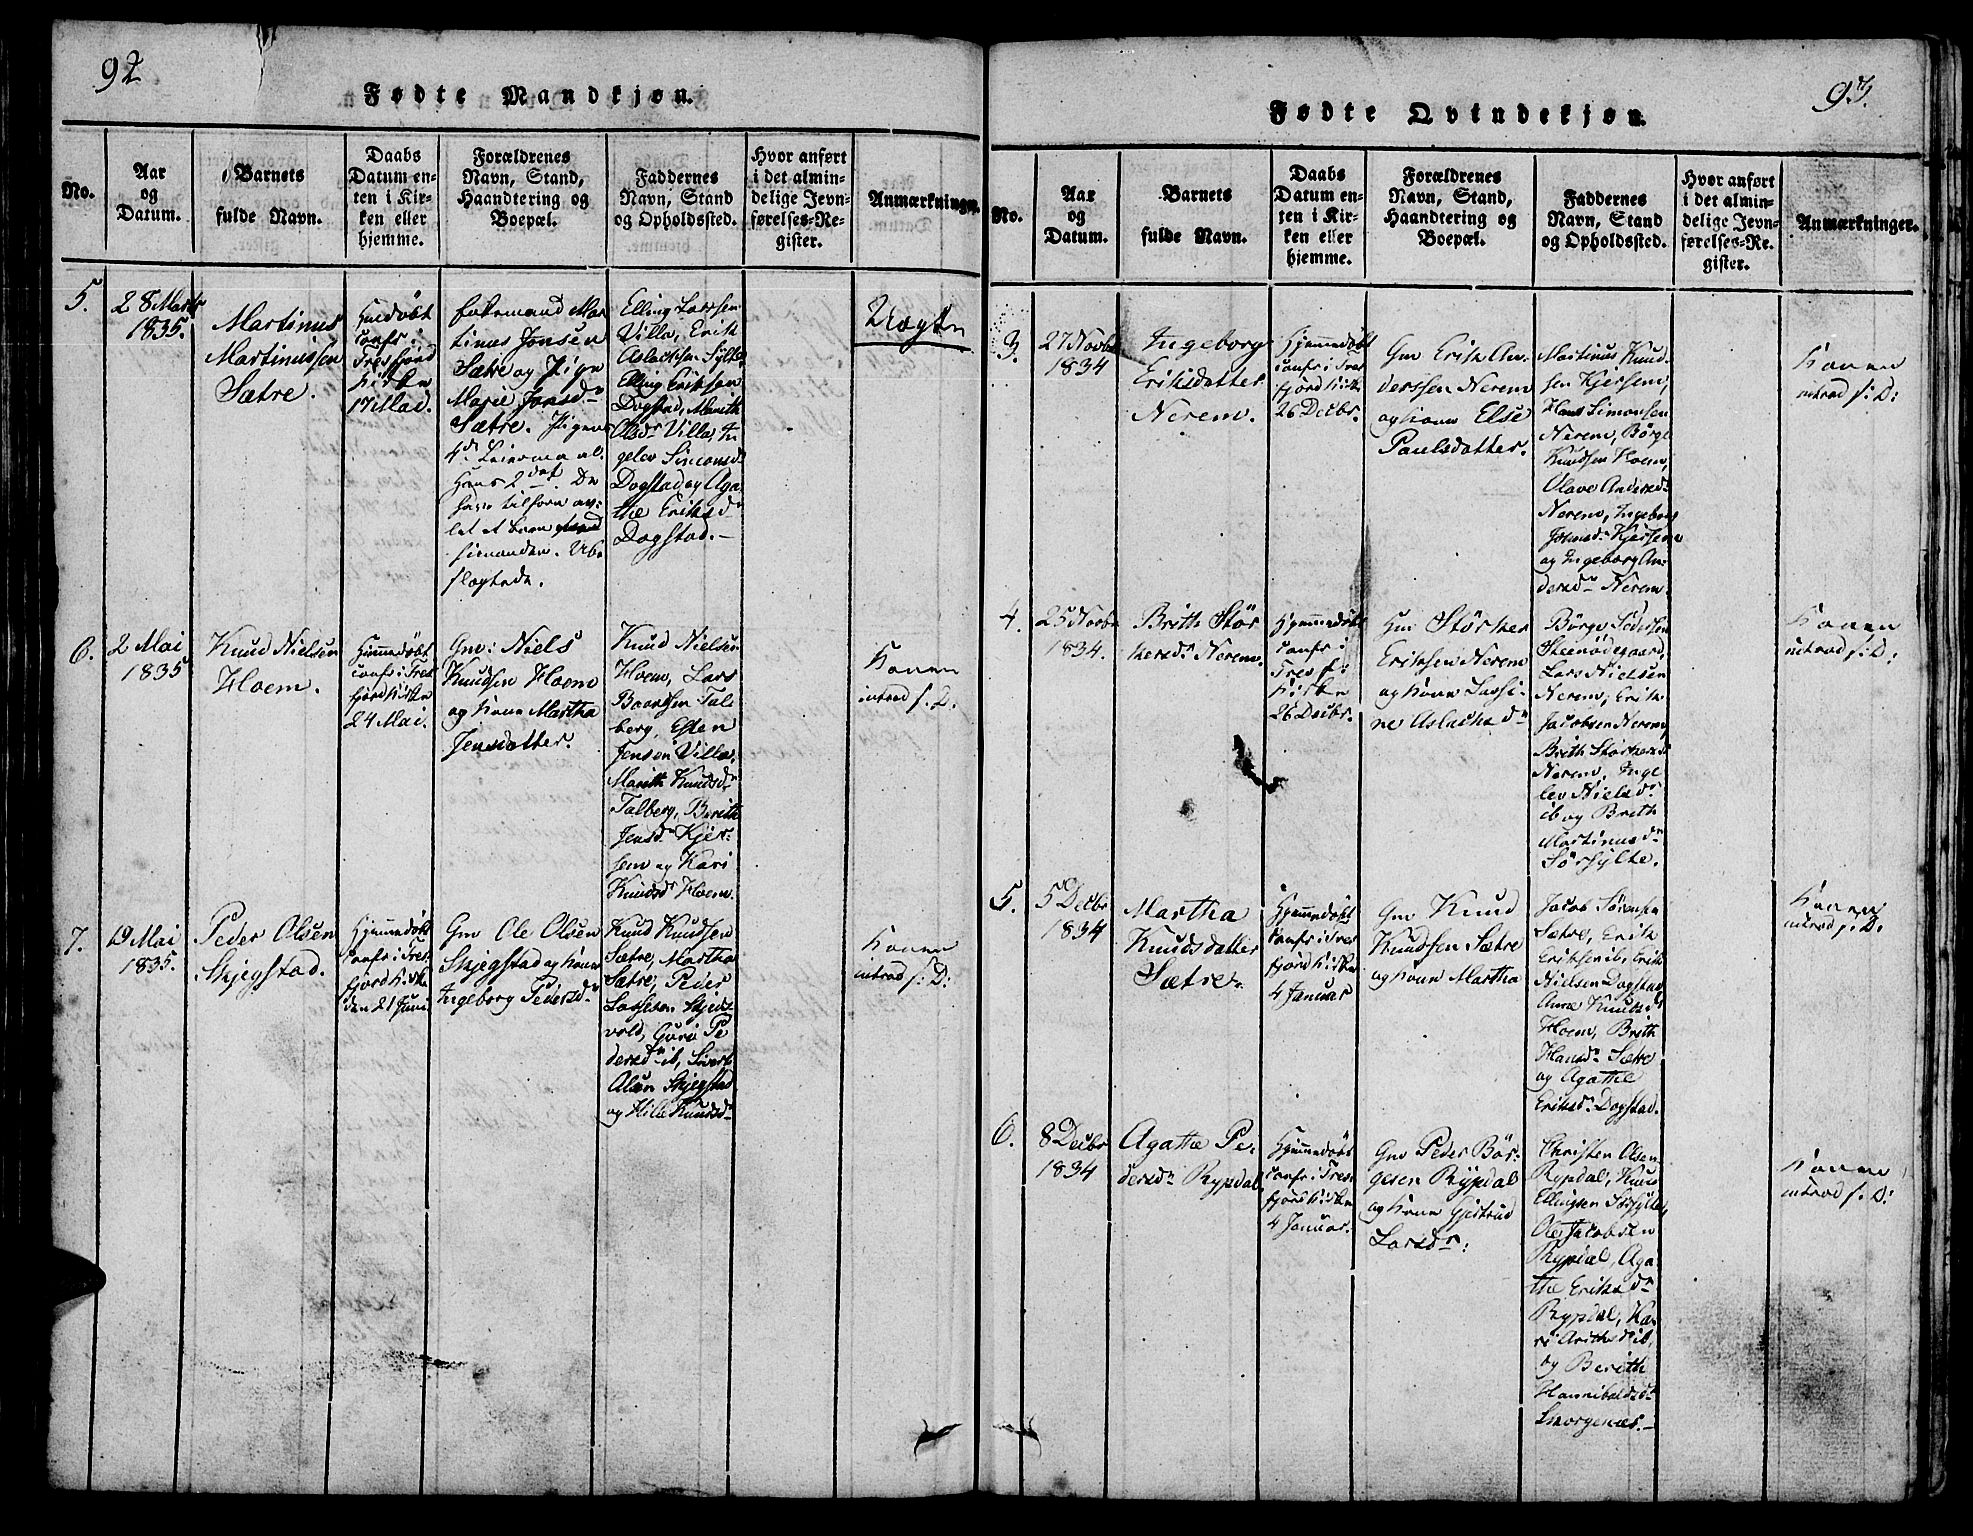 92
Fødte Mandkjøn.
No.
Aar
og
Datum.
Barnets
fulde Navn.
Daabs
Datum en-
ten i Kir-
ken eller
hjemme.
Forældrenes
Navn, Stand,
Haandtering og
Boepæl.
Faddernes
Navn, Stand
og Opholdssted.
Hvor anført
i det almin-
delige Jevn-
førelses-Re-
gister.
Anmærkninger.
5.
28 Marts
1835.
Martinus
Martinussen
Sætre.
Hmdøbt
conf: i
Tresfjord
Kirke
17 Mai.
Mar
tinus Jonsen
Sætre og Pige
Marie Jonsdr
Sætre. Pigens
4de Leiermaal.
Hans 2det. De
have tilforn av-
let et barn
Elling Larssen
Villa, Erik
Aslachsen Sylte
Elling Eriksen
Dogstad, Marith
Olsdr Villa, In
gelev Simonsd
Dogstad og Aga
the Eriksdr
Dogstad.-
Uægte
6.
2 Mai
1835
Knud Nielsen
Hoem.
Hjemmedøbt
conf: i Tres
fjord Kirke
24 Mai.
Gm: Niels
Knudsen Hoem
og Kone Martha
Jensdatter.
Knud Nielsen
Hoem, Lars
Baardsen Tal
berg, Esten
Jensen Villa,
Marith Knudsdr
Talberg, Berith
Jensdr Kjer-
sem og Kari
Knudsdr Hoem.
Konen
introd s: D:
7.
19 Mai
1835.
Peder Olsen
Skjegstad.
Hjemmedøbt
conf: i Tres
fjord Kirke
den 21 Juni.
Gm Ole Olsen
Skjegstad og Kone
Ingeborg Pedersdr
Knud Knudsen
Sætre, Martha
Sætre, Peder
Larssen
vold, Guro Pe
dersdr ib, Sivert
Olsen Skjegstad
og Knudsdr
Konen
introd s: D:
93.
Fødte Qvindekjøn.
No.
Aar
og
Datum.
Barnets
fulde Navn.
Daabs
Datum en-
ten i Kir-
ken eller
hjemme.
Forældrenes
Navn, Stand,
Haandtering og
Boepæl.
Faddernes
Navn, Stand
og Opholdssted.
Hvor anført
i det almin-
delige Jevn-
førelses-Re-
gister.
Anmærkninger.
3.
27 Novbr
1834
Ingeborg
Eriksdatter
Nerem.
Hjemmedøbt
conf: i Tres
fjord Kirke
26 Decbr.
Gm Erik An
derssen Nerem
og Kone Else
Paulsdatter.
Martinus Knud
sen Kjersem,
Hans Simonsen
Nerem, Børge
Knudsen Hoem,
Olave Andersdr
Nerem, Ingeborg
Johnsdr Kjersem
og Ingeborg An-
dersdr Nerem.
Konen
introd s: D:
4.
25 Novbr
1834.
Brith Stör
kersdr Nerem.
Hjemmedøbt
conf: i
Tresfj:
Kirke
26 Decbr.
Gm Störker
Eriksen Nerem
og Kone Lassi-
ne Aslachsdr
Börge Pedersen
Steenödegaard,
Lars Nielsen
Nerem, Erik
Jacobsen Nerem,
Brith Störkersdr
Nerem, Inge
lev Nielsdr
ib og Brith
Martinusdr
Sörsylte.
Konen
introd s: D:
5.
5 Decbr
1834
Martha
Knudsdatter
Sætre.
Hjemmedøbt
conf: i Tres
fjord Kirke
4 Januar
Gm Knud
Knudsen Sætre
og Kone Martha
Jacob Sørensen
Sætre, Erik
Eriksen ib, Erik
Nielsen Dogstad
Anne Knudsdr
Hoem, Brith
Hansdr Sætre
og Agathe
Eriksdr Dogstad.
Konen
introd s: D:
6.
8 Decbr
1834
Agathe Pe-
dersdr Rypdal.
Hjemmedøbt
conf: i Tres
fjord Kirke
4 Januar.
Gm Peder Bör-
gesen Rypdal
og Kone Gjertrud
Larsdr:
Christen Olsen
Rypdal, Knud
Ellingsen Sörsylte,
Ole Jacobsen
Rypdal, Aga-
the Eriksdr
Rypdal, Ka-
ri ib,
og Berith
Hannibalsdr
Smorgenæs.-
Konen
introd s: D: